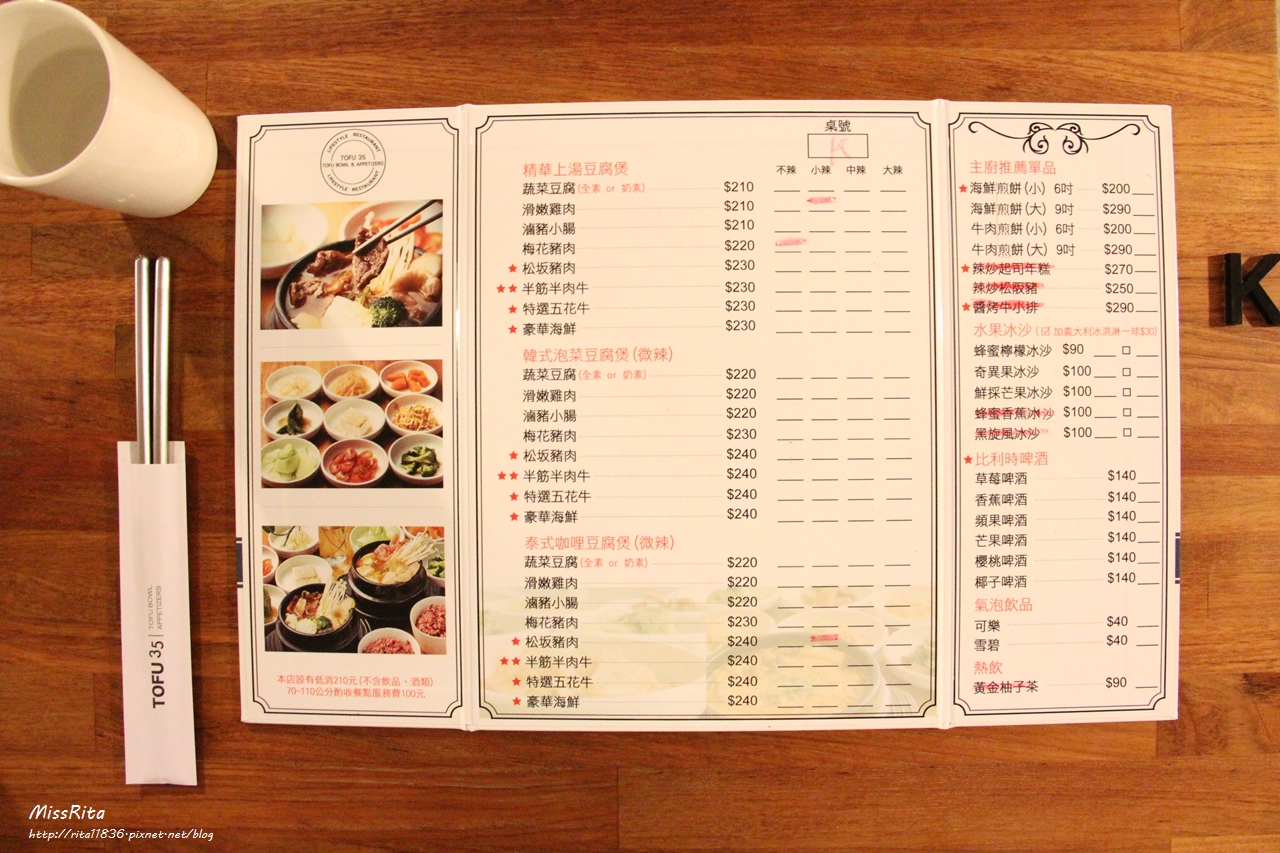 LIFESTYLE RESTAURANT
TOFU 35
TOFU BOWL & APPETIZERS
LIFESTYLE RESTAURANT
本店設有低消210元(不含飲品、酒類)
70~110公分酌收餐點服務費100元
桌號
K
精華上湯豆腐煲 不辣 小辣 中辣 大辣
蔬菜豆腐(全素 or 奶素) $210
滑嫩雞肉 $210
滷豬小腸 $210
梅花豬肉 $220
★ 松坂豬肉 $230
★★ 半筋半肉牛 $230
★ 特選五花牛 $230
★ 豪華海鮮 $230
韓式泡菜豆腐煲(微辣)
蔬菜豆腐(全素 or 奶素) $220
滑嫩雞肉 $220
滷豬小腸 $220
梅花豬肉 $230
★ 松坂豬肉 $240
★★ 半筋半肉牛 $240
★ 特選五花牛 $240
★ 豪華海鮮 $240
泰式咖哩豆腐煲(微辣)
蔬菜豆腐(全素 or 奶素) $220
滑嫩雞肉 $220
滷豬小腸 $220
梅花豬肉 $230
★ 松坂豬肉 $240
★★ 半筋半肉牛 $240
★ 特選五花牛 $240
★ 豪華海鮮 $240
主廚推薦單品
★ 海鮮煎餅(小) 6吋 $200
海鮮煎餅(大) 9吋 $290
牛肉煎餅(小) 6吋 $200
牛肉煎餅(大) 9吋 $290
★ 辣炒起司年糕 $270
辣炒松阪豬 $250
★ 醬烤牛小排 $290
水果冰沙 (☑ 加義大利冰淇淋一球$30)
蜂蜜檸檬冰沙 $90
奇異果冰沙 $100
鮮採芒果冰沙 $100
蜂蜜香蕉冰沙 $100
黑旋風冰沙 $100
★ 比利時啤酒
草莓啤酒 $140
香蕉啤酒 $140
蘋果啤酒 $140
芒果啤酒 $140
櫻桃啤酒 $140
椰子啤酒 $140
氣泡飲品
可樂 $40
雪碧 $40
熱飲
黃金柚子茶 $90
K
TOFU 35 | TOFU BOWL APPETIZERS
MissRita
http://rita11836.pixnet.net/blog